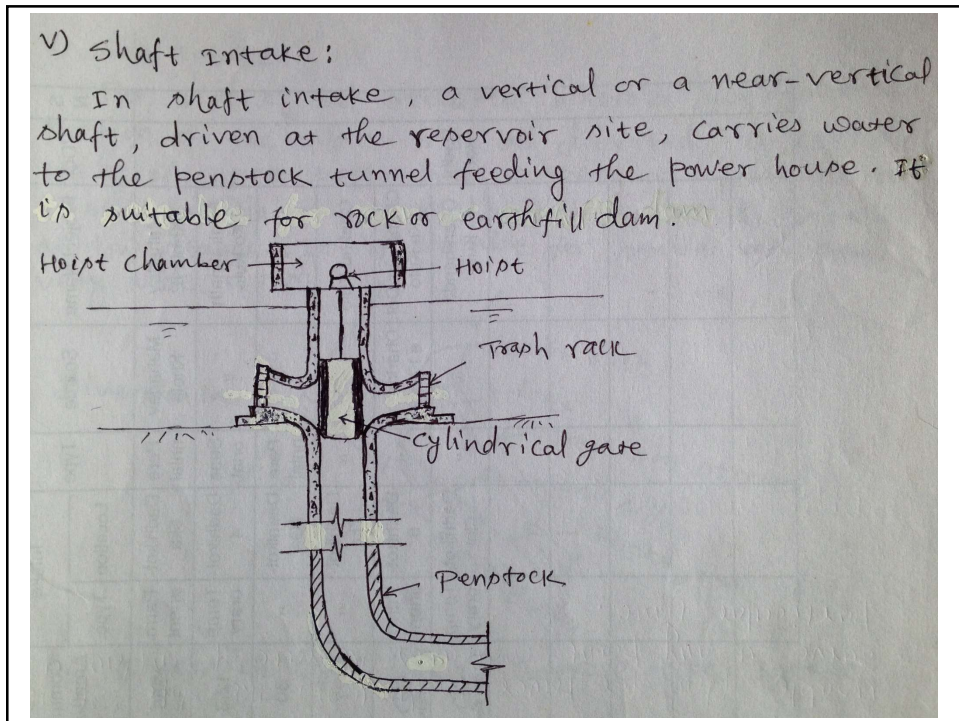 v) Shaft Intake:
In shaft intake, a vertical or a near-vertical
shaft, driven at the reservoir site, carries water
to the penstock tunnel feeding the power house. It
is suitable for rock or earthfill dam.
Hoist Chamber
Hoist
Trash rack
cylindrical gate
Penstock